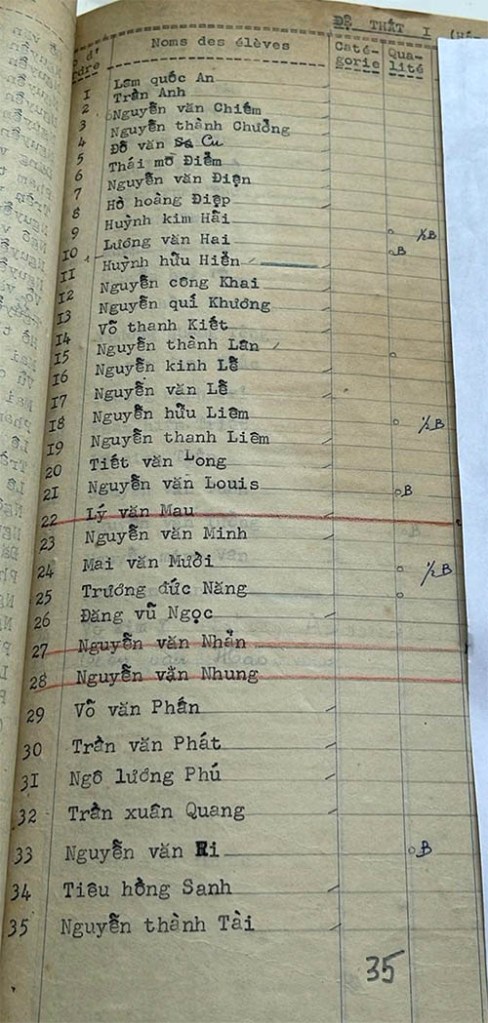 ĐỆ THẤT I
d' ordre Noms des élèves Caté-gorie Qua-lité
1 Lam quốc An
2 Trần Anh
3 Nguyễn văn Chiếm
4 Nguyễn thành Chưởng
5 Đỗ văn Cu
6 Thái mỏ Điểm
7 Nguyễn văn Điện
8 Hồ hoàng Điệp
9 Huỳnh kim Hải ½B
10 Lương văn Hai B
11 Huỳnh hữu Hiền
12 Nguyễn công Khai
13 Nguyễn quí Khương
14 Võ thanh Kiết
15 Nguyễn thành Lân
16 Nguyễn kinh Lễ
17 Nguyễn văn Lễ
18 Nguyễn hữu Liêm ½B
19 Nguyễn thanh Liêm
20 Tiết văn Long
21 Nguyễn văn Louis B
22 Lý văn Mau
23 Nguyễn văn Minh
24 Mai văn Mười ½B
25 Trương đức Năng
26 Đăng vũ Ngọc
27 Nguyễn văn Nhẩn
28 Nguyễn văn Nhung
29 Võ văn Phấn
30 Trần văn Phát
31 Ngô lương Phú
32 Trần xuân Quang
33 Nguyễn văn Ri B
34 Tiêu hồng Sanh
35 Nguyễn thành Tài
35